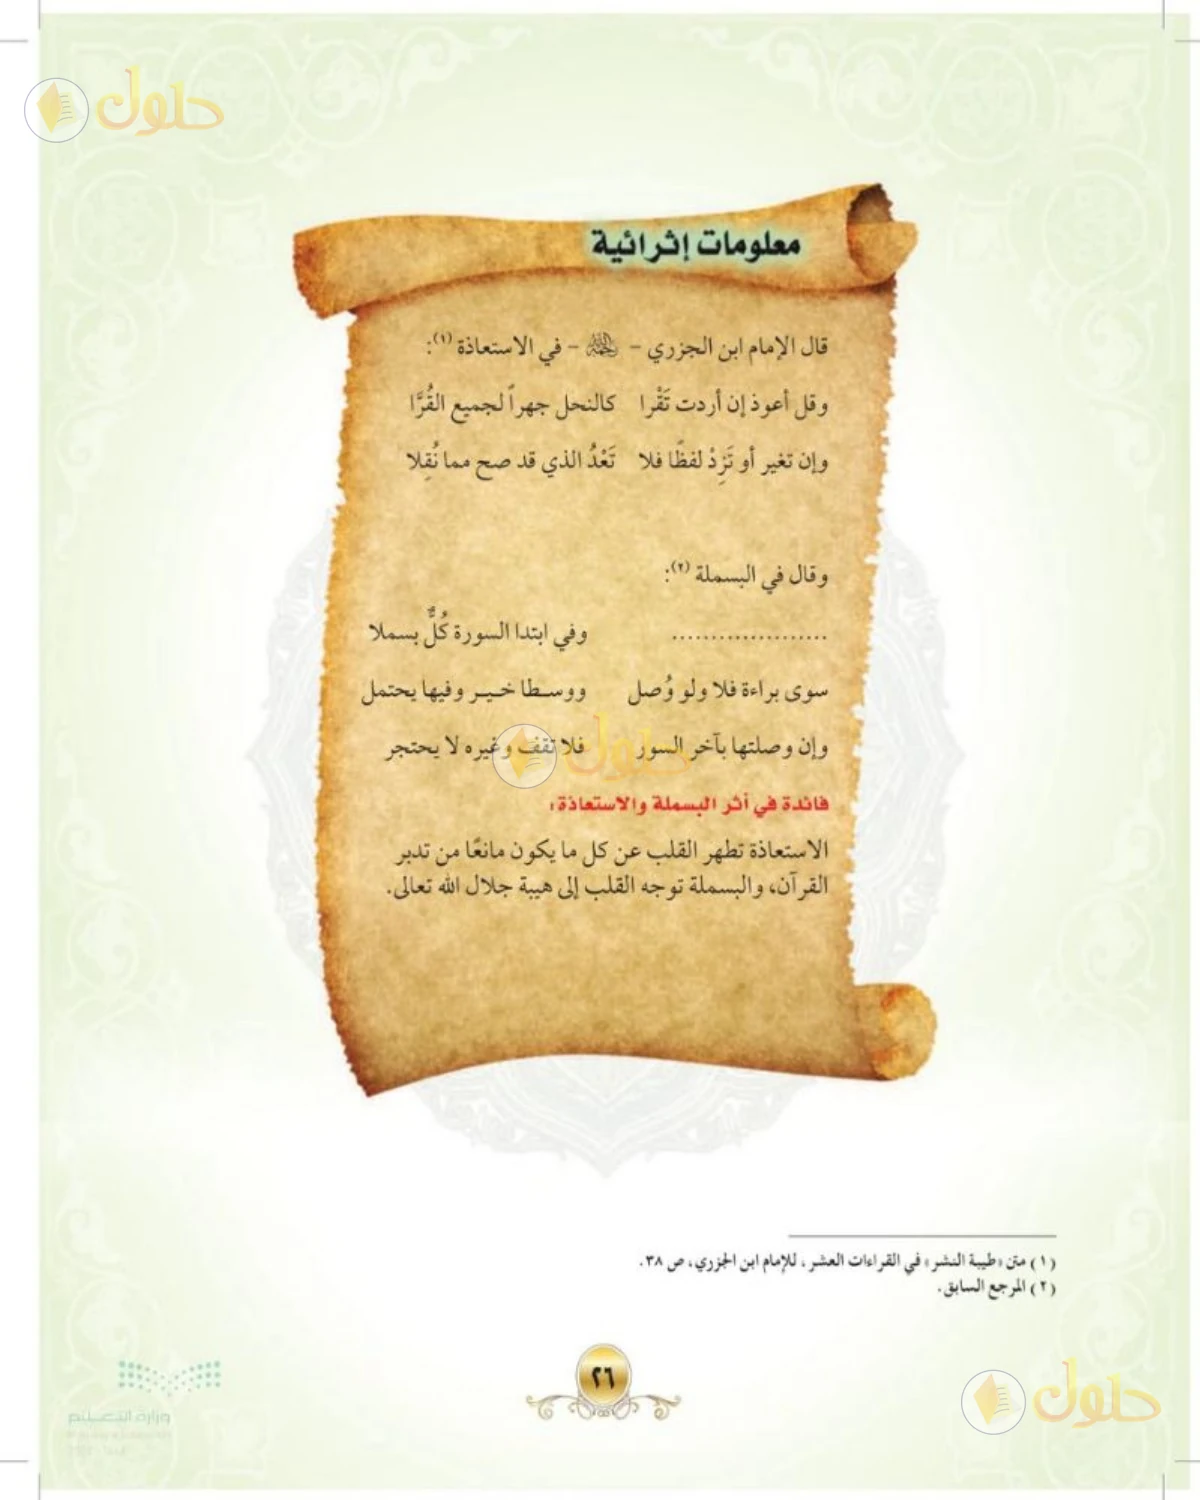 حلول
معلومات إثرائية
قال الإمام ابن الجزري - رحمه الله - في الاستعاذة (١):
وقل أعوذ إن أردت تَقْرا كالنحل جهراً لجميع القُرَّا
وإن تغير أو تَزِدْ لفظًا فلا تَعْدُ الذي قد صح مما نُقِلا
وقال في البسملة (٢):
.................... وفي ابتدا السورة كُلٌّ بسملا
سوى براءة فلا ولو وُصل ووسـطا خـيـر وفيها يحتمل
وإن وصلتها بآخر السور فلا تقف وغيره لا يحتجر
حلول
فائدة في أثر البسملة والاستعاذة:
الاستعاذة تطهر القلب عن كل ما يكون مانعًا من تدبر
القرآن، والبسملة توجه القلب إلى هيبة جلال الله تعالى.
(١) متن «طيبة النشر» في القراءات العشر، للإمام ابن الجزري، ص ٣٨.
(٢) المرجع السابق.
٢٦
وزارة التعـــليم
حلول